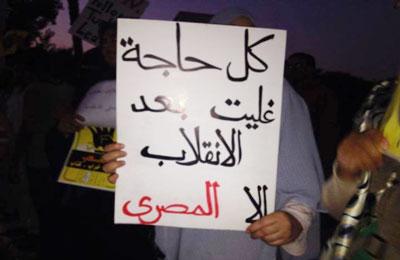 كل حاجة
غليت بعد
الانقلاب
إلا المصرى